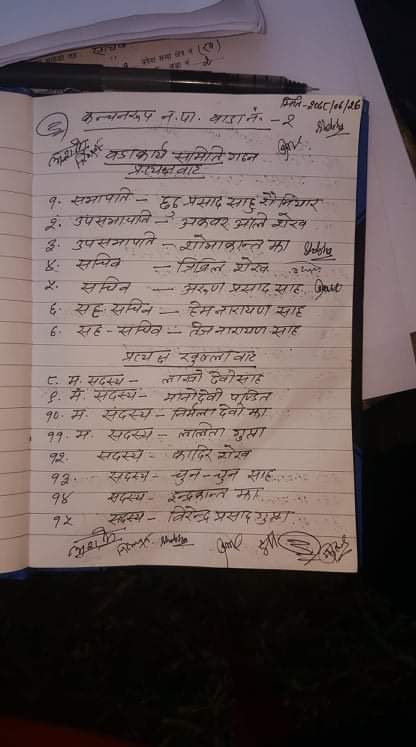 मिति-२०७८/०६/२६
कन्चनरुप न.पा. वडा नं. -२
वडाकार्य समिति गठन
प्रत्यक्ष बाट
१. सभापति - प्रसाद साहु
२. उपसभापति - अकबर अलि शेख
३. उपसभापति - शोभाकान्त झा
४. सचिव - शेख
५. सचिव - अरुण प्रसाद साह
६. सह-सचिव - हेमनारायण साह
६. सह-सचिव - तेजनारायण साह
प्रत्यक्ष खुल्ला बाट
८. म. सदस्य - लाखो देवी साह
९. म. सदस्य - मानोदेवी पण्डित
१०. म. सदस्य - विमला देवी झा
११. म. सदस्य - ललिता गुप्ता
१२. सदस्य - कादिर शेख
१३. सदस्य - चुन-चुन साह
१४ सदस्य - इन्द्रकान्त झा
१५ सदस्य - विरेन्द्र प्रसाद गुप्ता